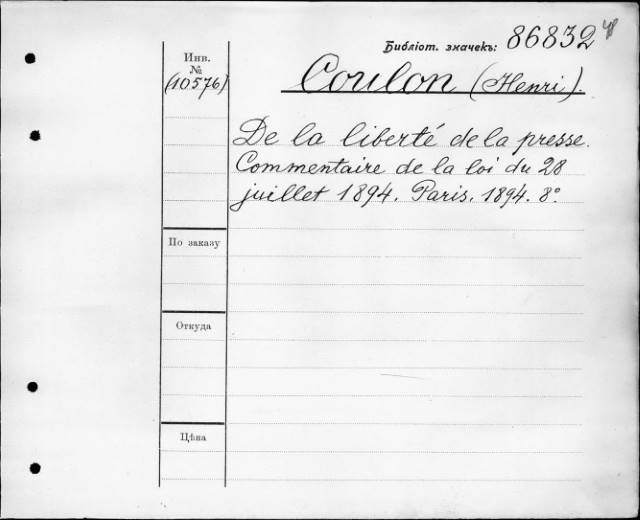 Библіот. значекъ: 86832
Инв. № (10576)
Coulon (Henri).
De la liberté de la presse.
Commentaire de la loi du 28
juillet 1894. Paris. 1894. 8º.
По заказу
Откуда
Цѣна